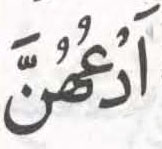 اَدْعُهُنَّ